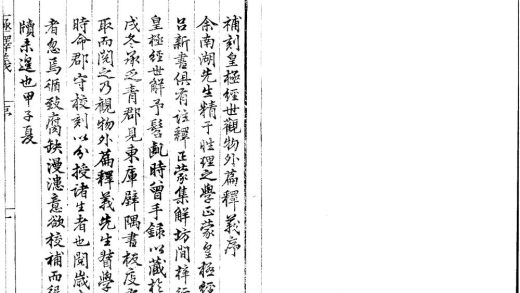 補刻皇極經世觀物外篇釋義序
余南湖先生精于性理之學正蒙皇極經
呂新書俱有註釋正蒙集解坊間梓行
皇極經世解予髫齓時曾手錄以藏於
戌冬承乏青郡見東庫壁隅書板度
取而閱之乃觀物外篇釋義先生督學
時命郡守校刻以分授諸生者也閱歲
者忽焉循致腐缺漫漶意欲校補而
牘未遑也甲子夏
極釋義 序 一